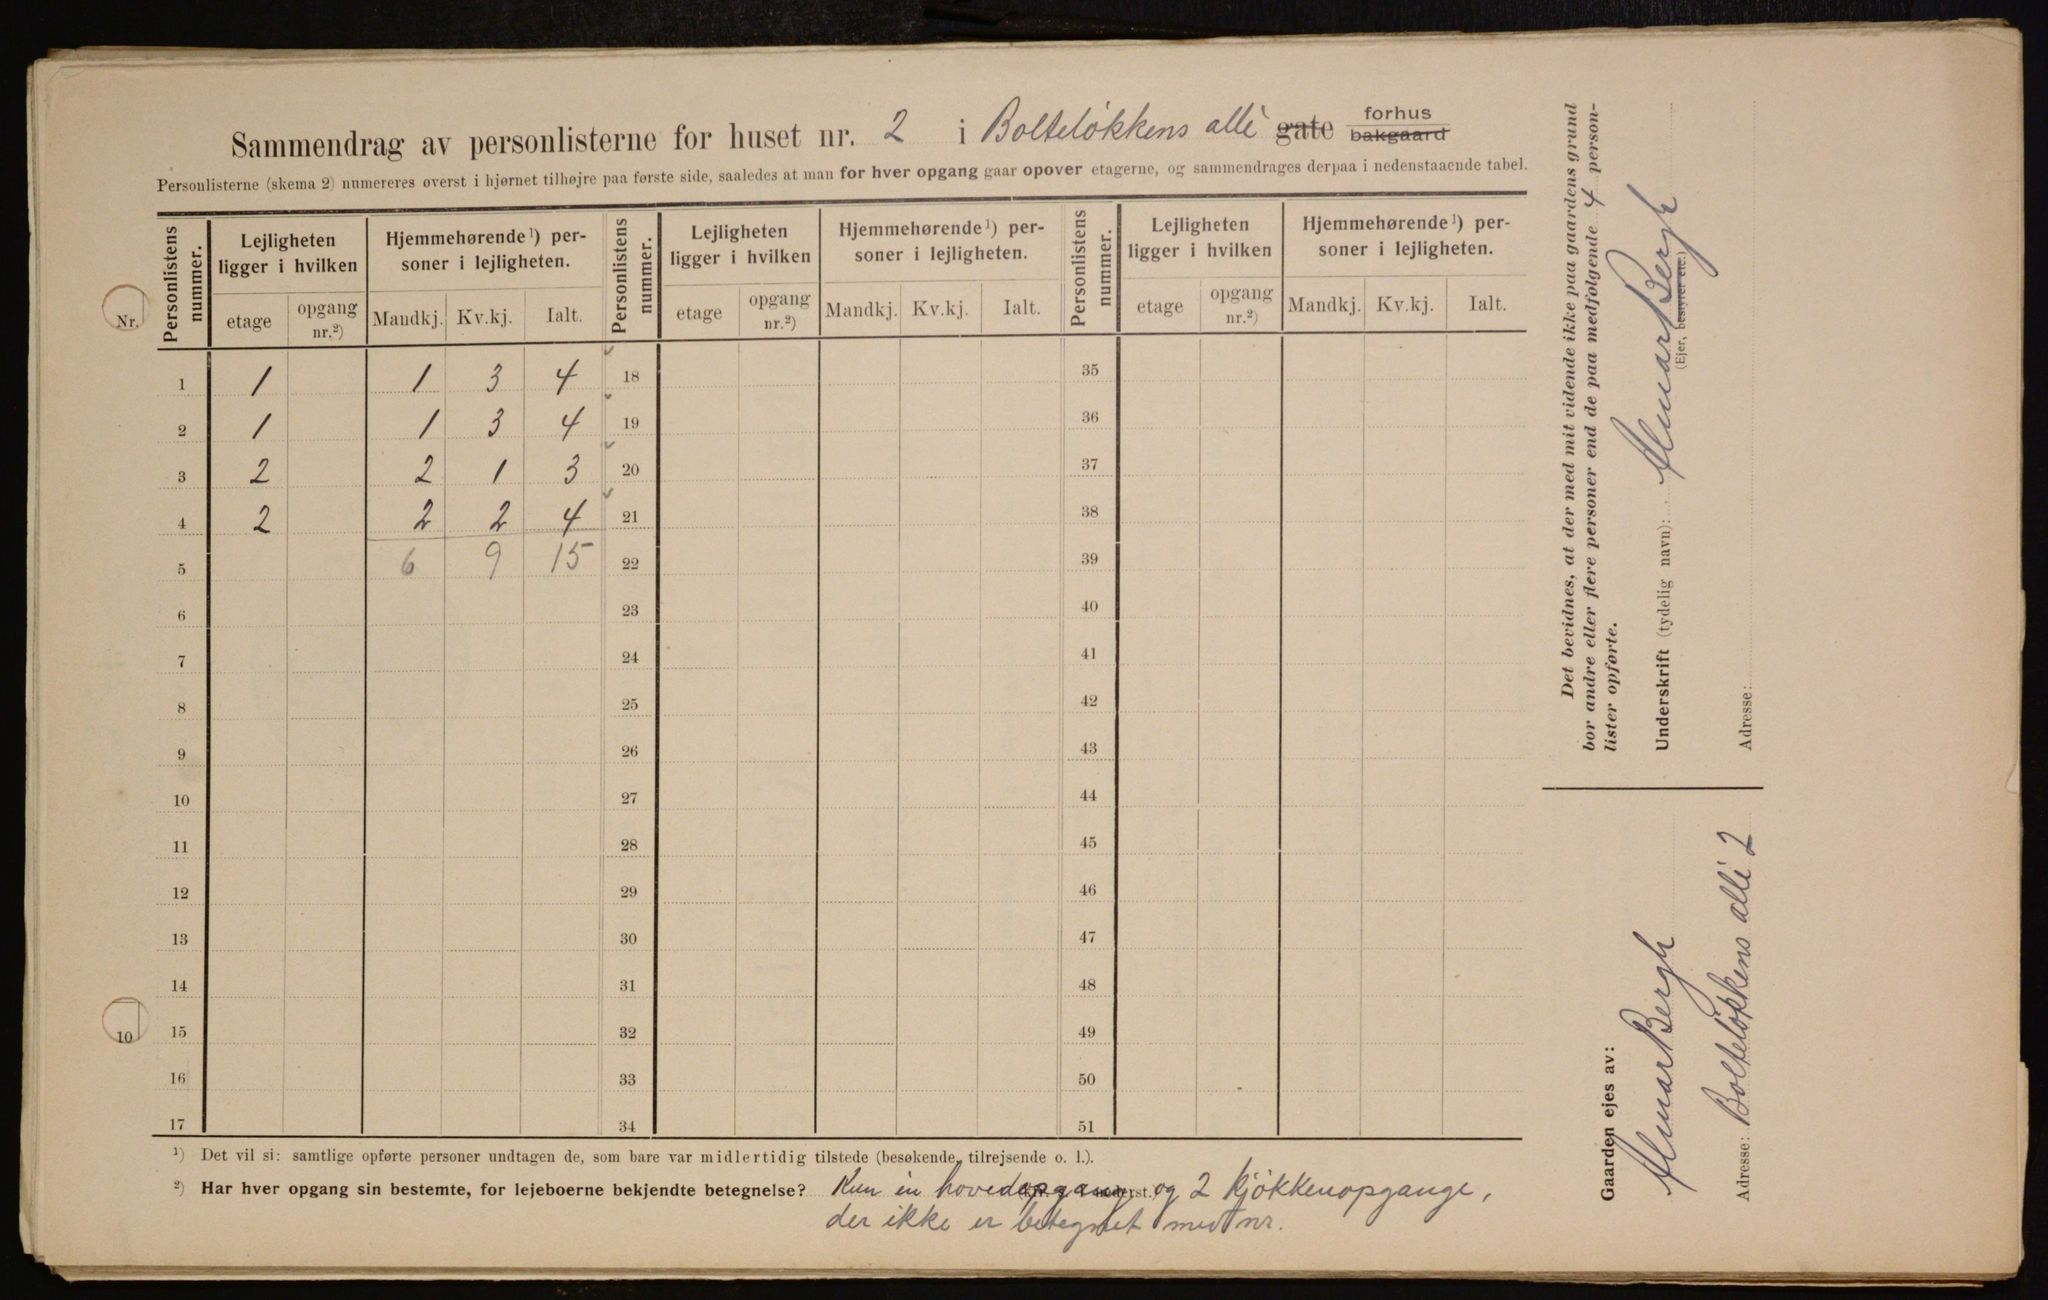 Sammendrag av personlisterne for huset nr. 2 i Bolteløkkens allé gate forhus bakgaard
Personlisterne (skema 2) numereres øverst i hjørnet tilhøjre paa første side, saaledes at man for hver opgang gaar opover etagerne, og sammendrages derpaa i nedenstaaende tabel.
Personlistens nummer. Lejligheten ligger i hvilken Hjemmehørende ¹) personer i lejligheten. Personlistens nummer. Lejligheten ligger i hvilken Hjemmehørende ¹) personer i lejligheten. Personlistens nummer. Lejligheten ligger i hvilken Hjemmehørende ¹) personer i lejligheten.
Nr. etage opgang nr.²) Mandkj. Kv.kj. Ialt. etage opgang nr.²) Mandkj. Kv.kj. Ialt. etage opgang nr.²) Mandkj. Kv.kj. Ialt.
1 1 1 3 4 18 35
2 1 1 3 4 19 36
3 2 2 1 3 20 37
4 2 2 2 4 21 38
5 6 9 15 22 39
6 23 40
7 24 41
8 25 42
9 26 43
10 27 44
11 28 45
12 29 46
13 30 47
14 31 48
10 15 32 49
16 33 50
17 34 51
¹) Det vil si: samtlige opførte personer undtagen de, som bare var midlertidig tilstede (besøkende, tilrejsende o. l.).
²) Har hver opgang sin bestemte, for lejeboerne bekjendte betegnelse? Kun en hovedopgang og 2 kjøkkenopgange,
der ikke er betegnet med nr.
Det bevidnes, at der med mit vidende ikke paa gaardens grund
bor andre eller flere personer end de paa medfølgende 4 person-
lister opførte.
Underskrift (tydelig navn): Almar Bergh
(Ejer, bestyrer etc.)
Adresse:
Gaarden ejes av:
Almar Bergh
Adresse: Bolteløkkens allé 2